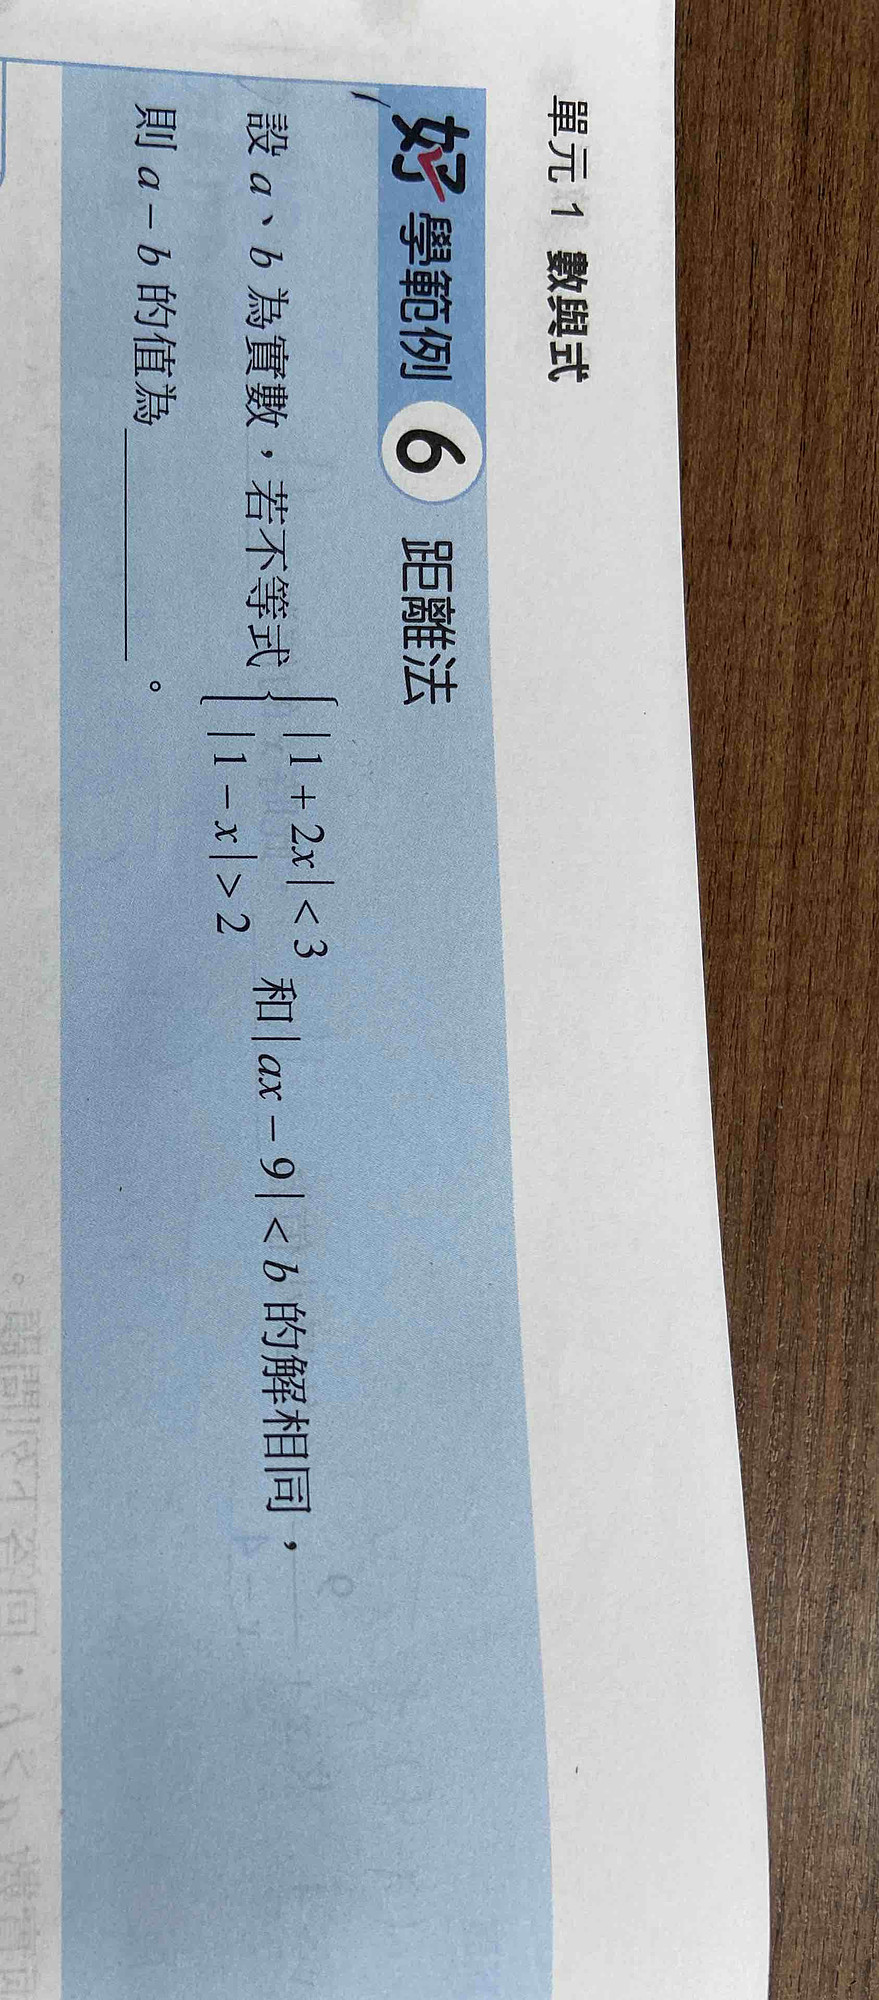 單元 1 數與式
好學範例 6 距離法
設 a、b 為實數，若不等式 { |1 + 2x| < 3
|1 − x| > 2 和 |ax − 9| < b 的解相同，
則 a − b 的值為________。